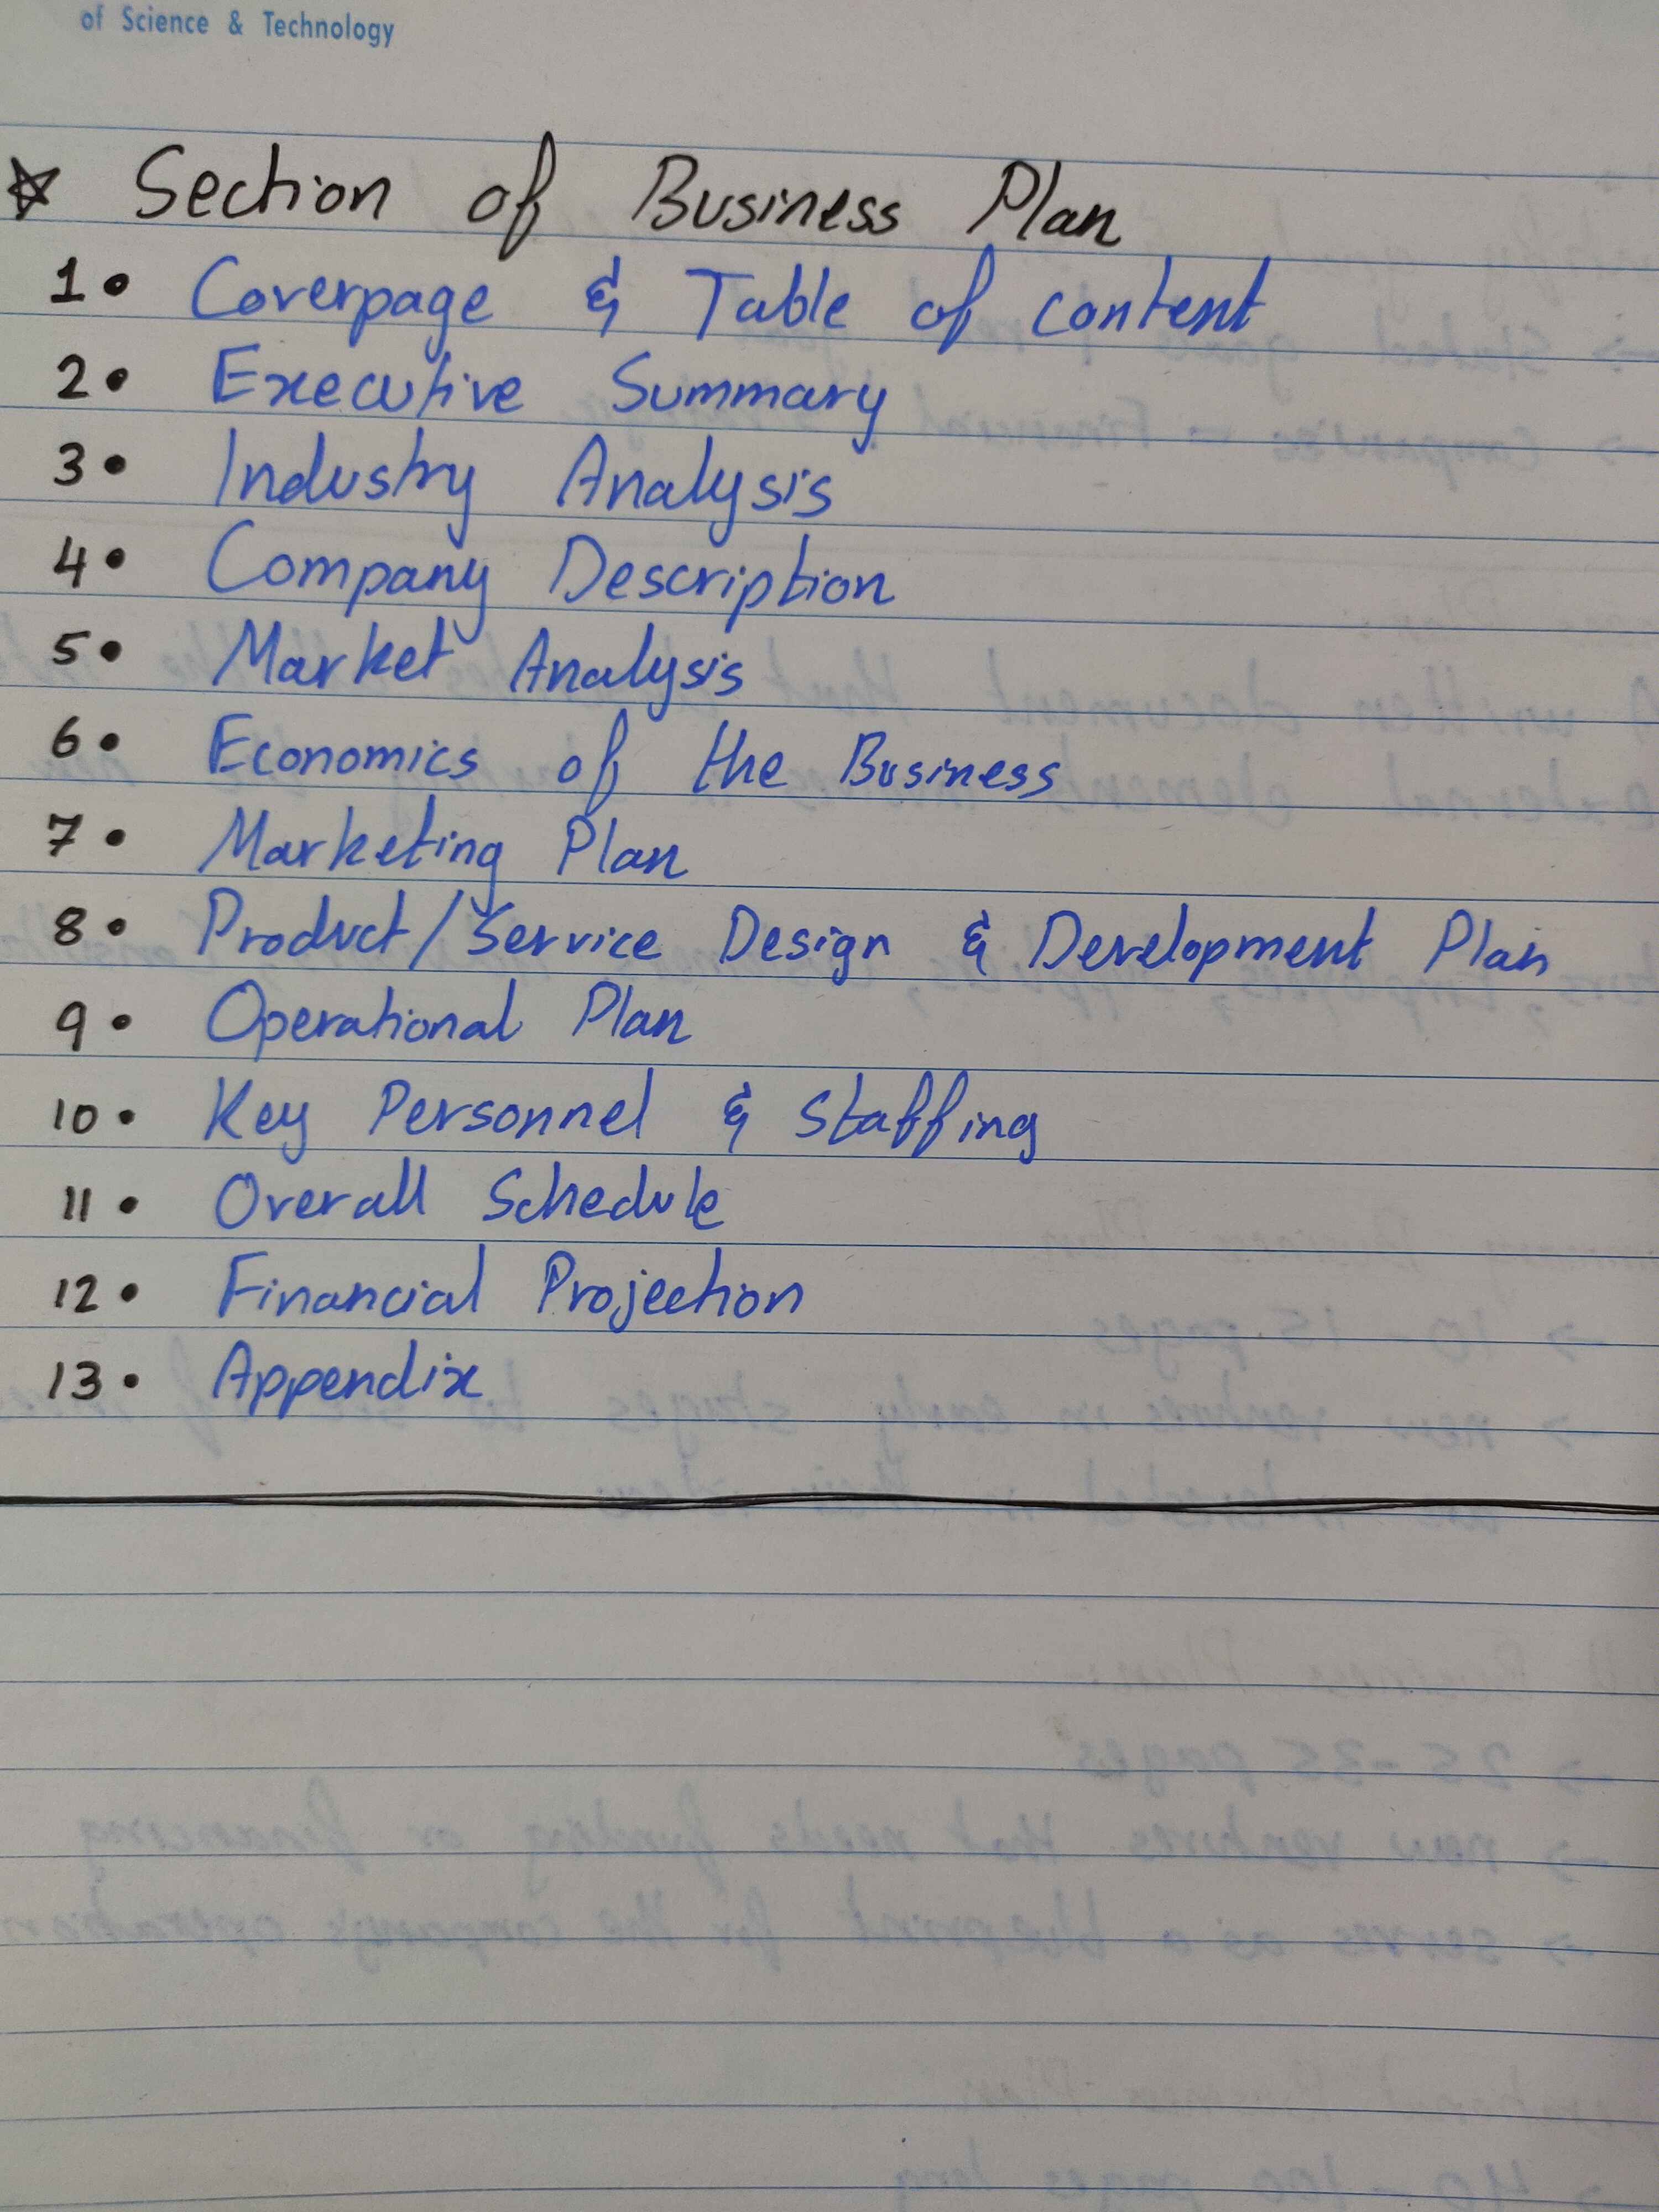 of Science & Technology
☆ Section of Business Plan
1• Coverpage & Table of content
2• Executive Summary
3• Industry Analysis
4• Company Description
5• Market Analysis
6• Economics of the Business
7• Marketing Plan
8• Product/Service Design & Development Plan
9• Operational Plan
10• Key Personnel & Staffing
11• Overall Schedule
12• Financial Projection
13• Appendix